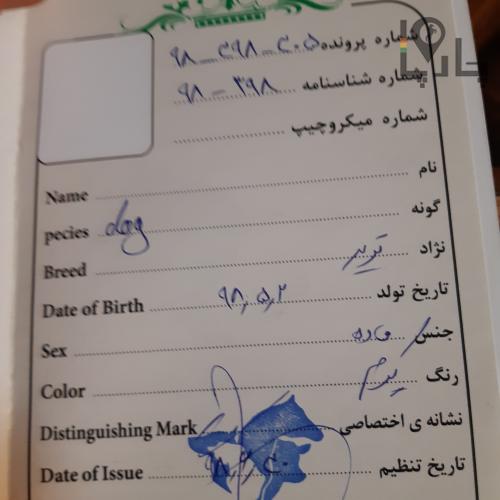 شماره پرونده ۹۸-۳۹۸-۳۰۵
شماره شناسنامه ۹۸-۳۹۸
شماره میکروچیپ
Name نام
pecies dog گونه
Breed تریر نژاد
Date of Birth ۹۸,۵,۲ تاریخ تولد
Sex ماده جنس
Color رنگ
Distinguishing Mark نشانه ی اختصاصی
Date of Issue تاریخ تنظیم
جاپا